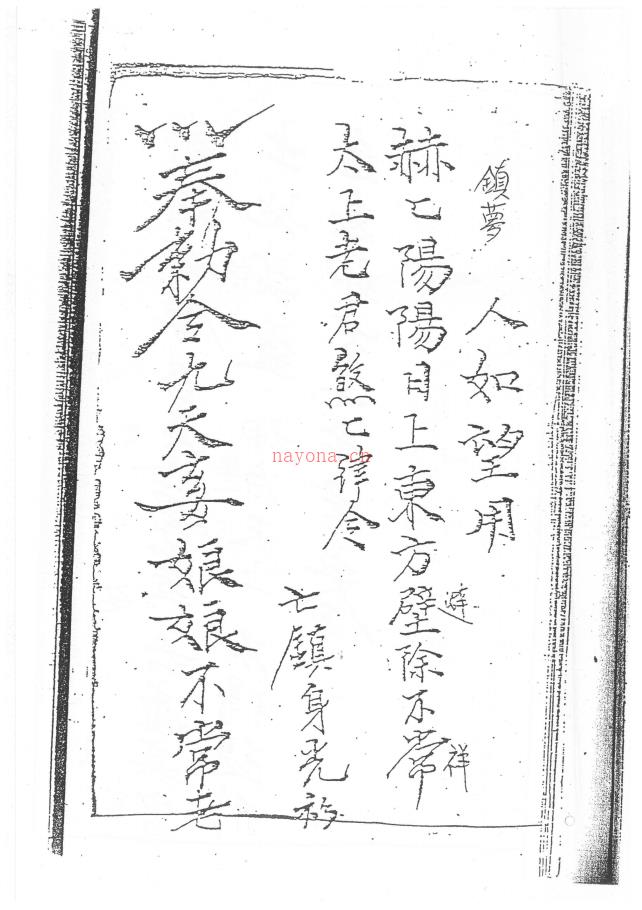 鎮夢
人如望用
赫匕陽陽日上東方壁除不常
避
祥
太上老君煞匕律令
七鎮身光符
奉勅令九天玄娘娘不常老
nayona.cn